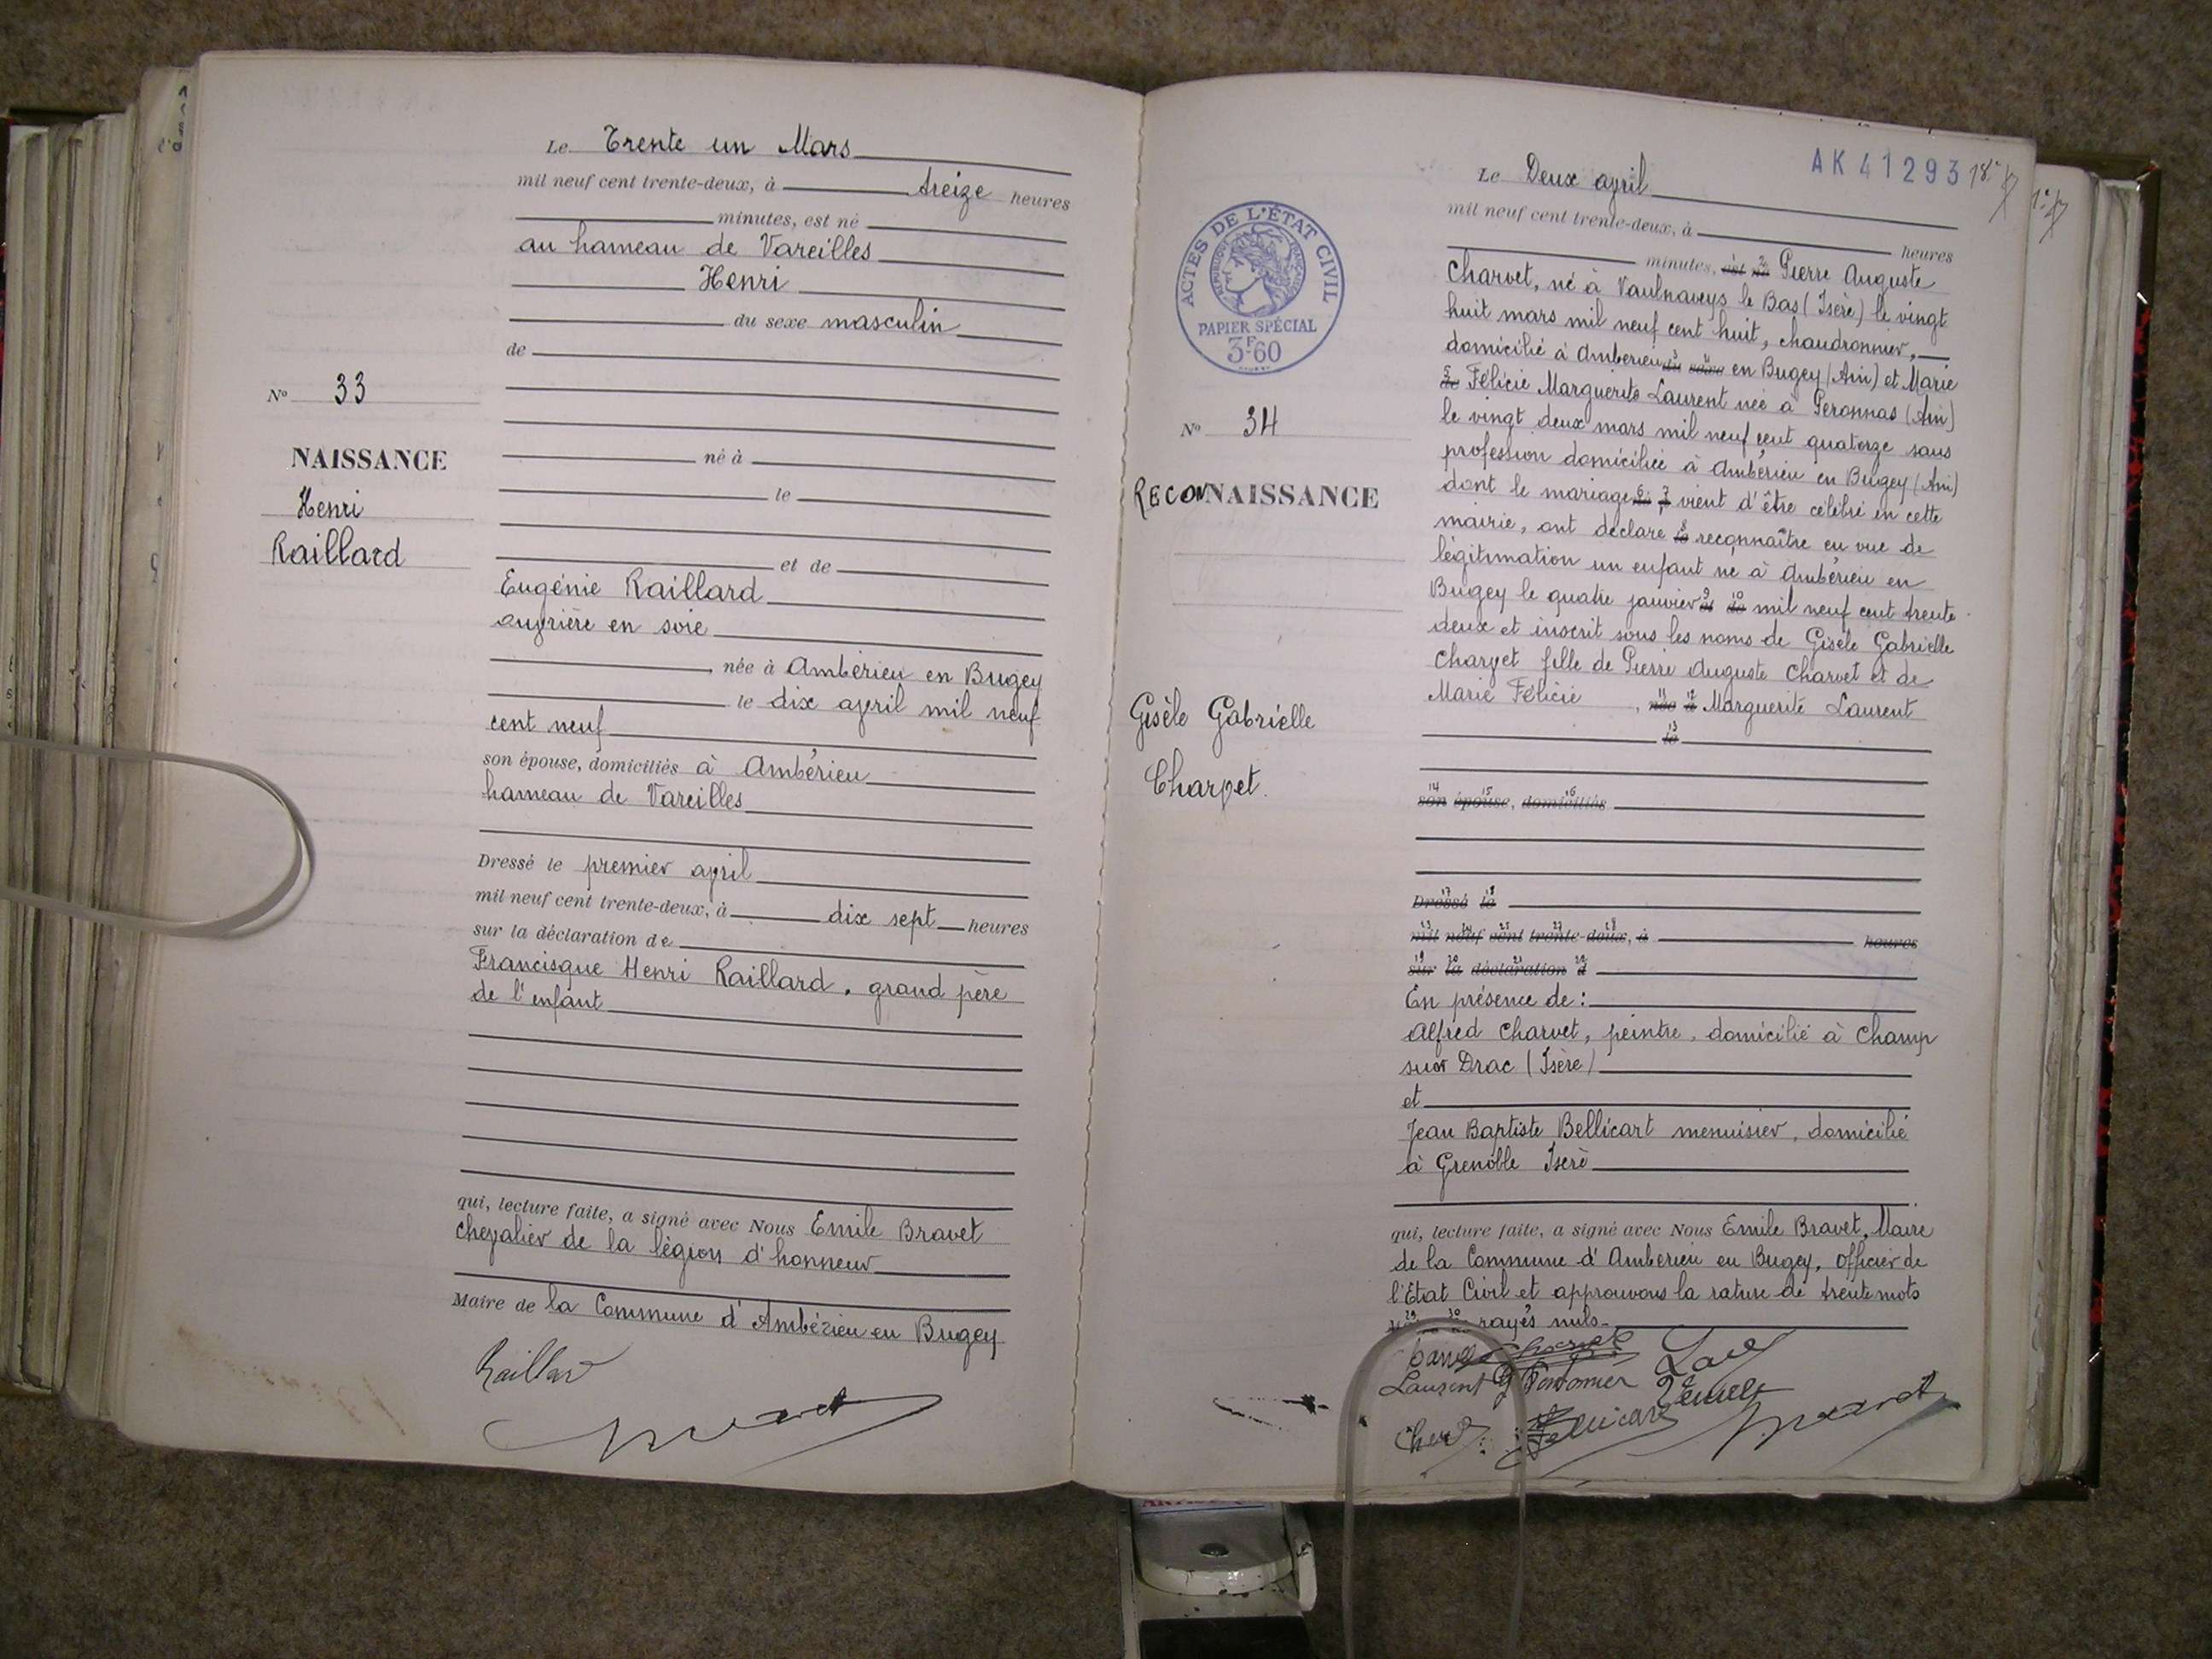 Le Trente un Mars
mil neuf cent trente-deux, à treize heures
minutes, est né
au hameau de Vareilles
Henri
du sexe masculin
de
né à
le
et de
Eugénie Raillard
ouvrière en soie
née à Ambérieu en Bugey
le dix avril mil neuf
cent neuf
son épouse, domiciliés à Ambérieu
hameau de Vareilles
Dressé le premier avril
mil neuf cent trente-deux, à dix sept heures
sur la déclaration de
Francisque Henri Raillard, grand père
de l'enfant
qui, lecture faite, a signé avec Nous Emile Bravet
chevalier de la légion d'honneur
Maire de la Commune d'Ambérieu en Bugey
N° 33
NAISSANCE
Henri
Raillard
AK 41293
ACTES DE L'ÉTAT CIVIL
RÉPUBLIQUE FRANÇAISE
PAPIER SPÉCIAL
3F60
N° 34
RECONNAISSANCE
Gisèle Gabrielle
Charvet.
Le Deux avril
mil neuf cent trente-deux, à heures
minutes, est né Pierre Auguste
Charvet, né à Vaulnaveys le Bas (Isère) le vingt
huit mars mil neuf cent huit, chaudronnier,
domicilié à Amberieu du sexe en Bugey (Ain) et Marie
de Félicie Marguerite Laurent née à Peronnas (Ain)
le vingt deux mars mil neuf cent quatorze sans
profession domiciliée à Ambérieu en Bugey (Ain)
dont le mariage vient d'être célébré en cette
mairie, ont déclaré le reconnaître en vue de
légitimation un enfant né à Ambérieu en
Bugey le quatre janvier et de mil neuf cent trente
deux et inscrit sous les noms de Gisèle Gabrielle
Charvet fille de Pierre Auguste Charvet et de
Marie Félicie, née à Marguerite Laurent
le
son épouse, domiciliés
Dressé le
mil neuf cent trente-deux, à heures
sur la déclaration d
En présence de :
Alfred Charvet, peintre, domicilié à Champ
sur Drac (Isère)
et
Jean Baptiste Bellicart menuisier, domicilié
à Grenoble Isère
qui, lecture faite, a signé avec Nous Emile Bravet, Maire
de la Commune d'Amberieu en Bugey, officier de
l'Etat Civil et approuvons la rature de trente mots
rayés nuls.
Laurent